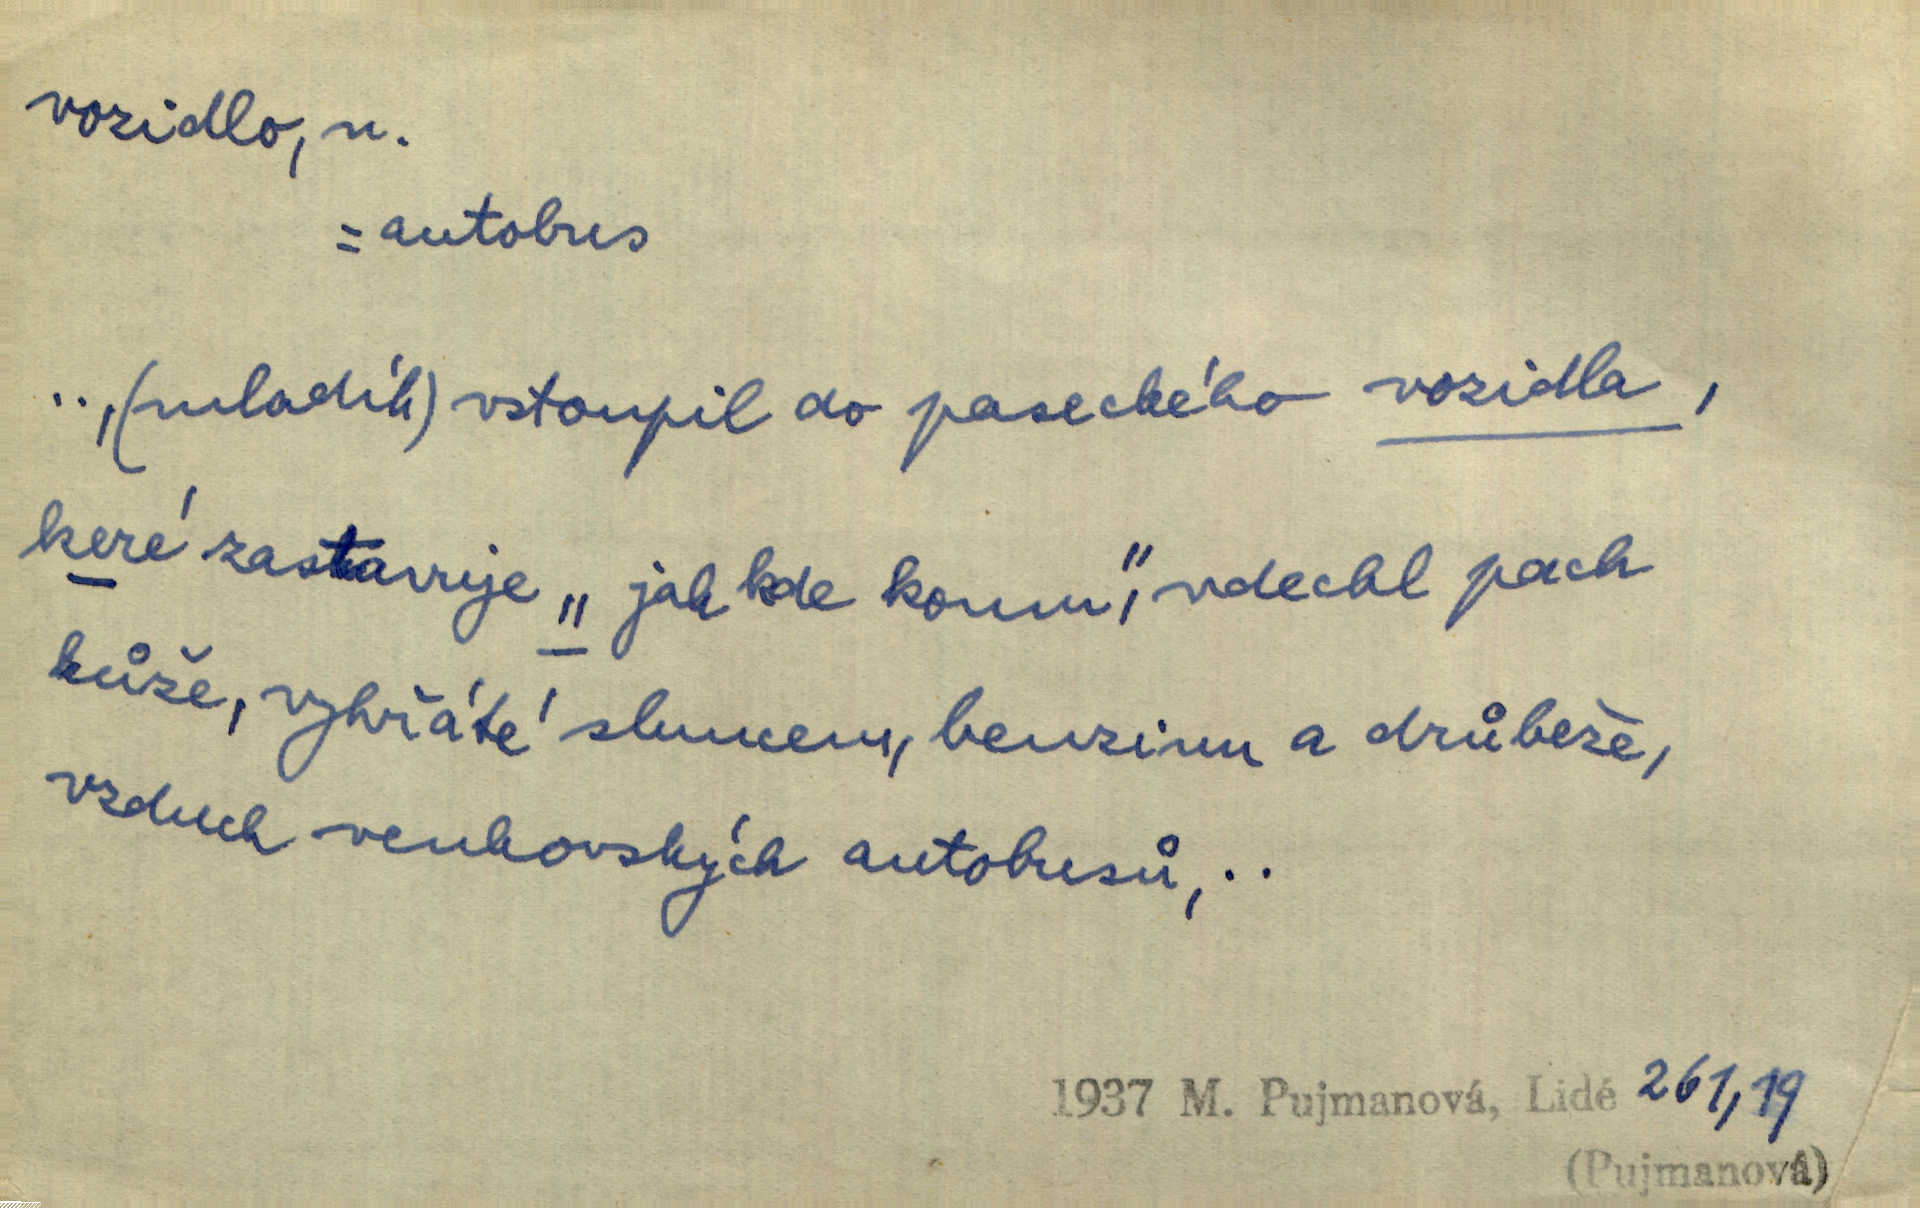 vozidlo, n.
= autobus
..,(mladík) vstoupil do paseckého vozidla,
keré zastavuje „ jak kde komu“, vdechl pach
kůže, vyhřáté sluncem, benzinu a drůbeže,
vzduch venkovských autobusů,..
1937 M. Pujmanová, Lidé 261,19
(Pujmanová)